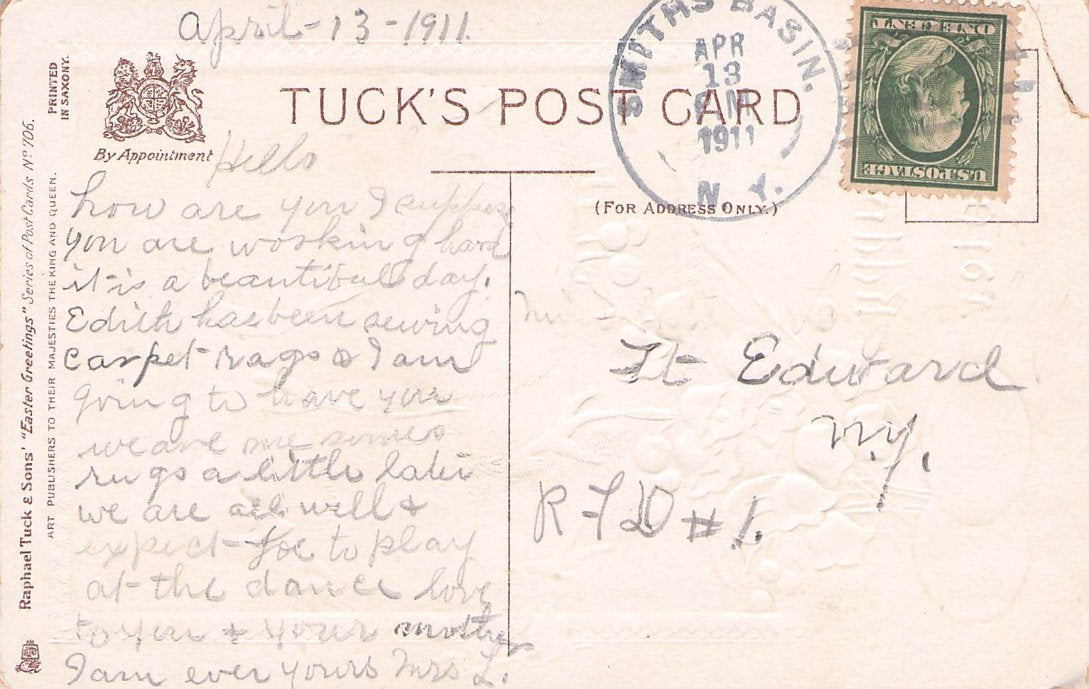 April-13-1911.
PRINTED
IN SAXONY.
TUCK'S POST CARD
By Appointment
SMITHS BASIN.
APR
13
PM
1911
N.Y.
ONE CENT
U.S. POSTAGE
(FOR ADDRESS ONLY.)
Raphael Tuck & Sons' "Easter Greetings" Series of Post Cards No 706.
ART PUBLISHERS TO THEIR MAJESTIES THE KING AND QUEEN.
Hello
how are you I suppose
you are working hard
it is a beautiful day.
Edith has been sewing
carpet rags & I am
going to have you
weave me some
rugs a little later
we are all well &
expect Joe to play
at the dance love
to you & your mother
I am ever yours Mrs L.
Ft Edward
N.Y.
R F D #1.